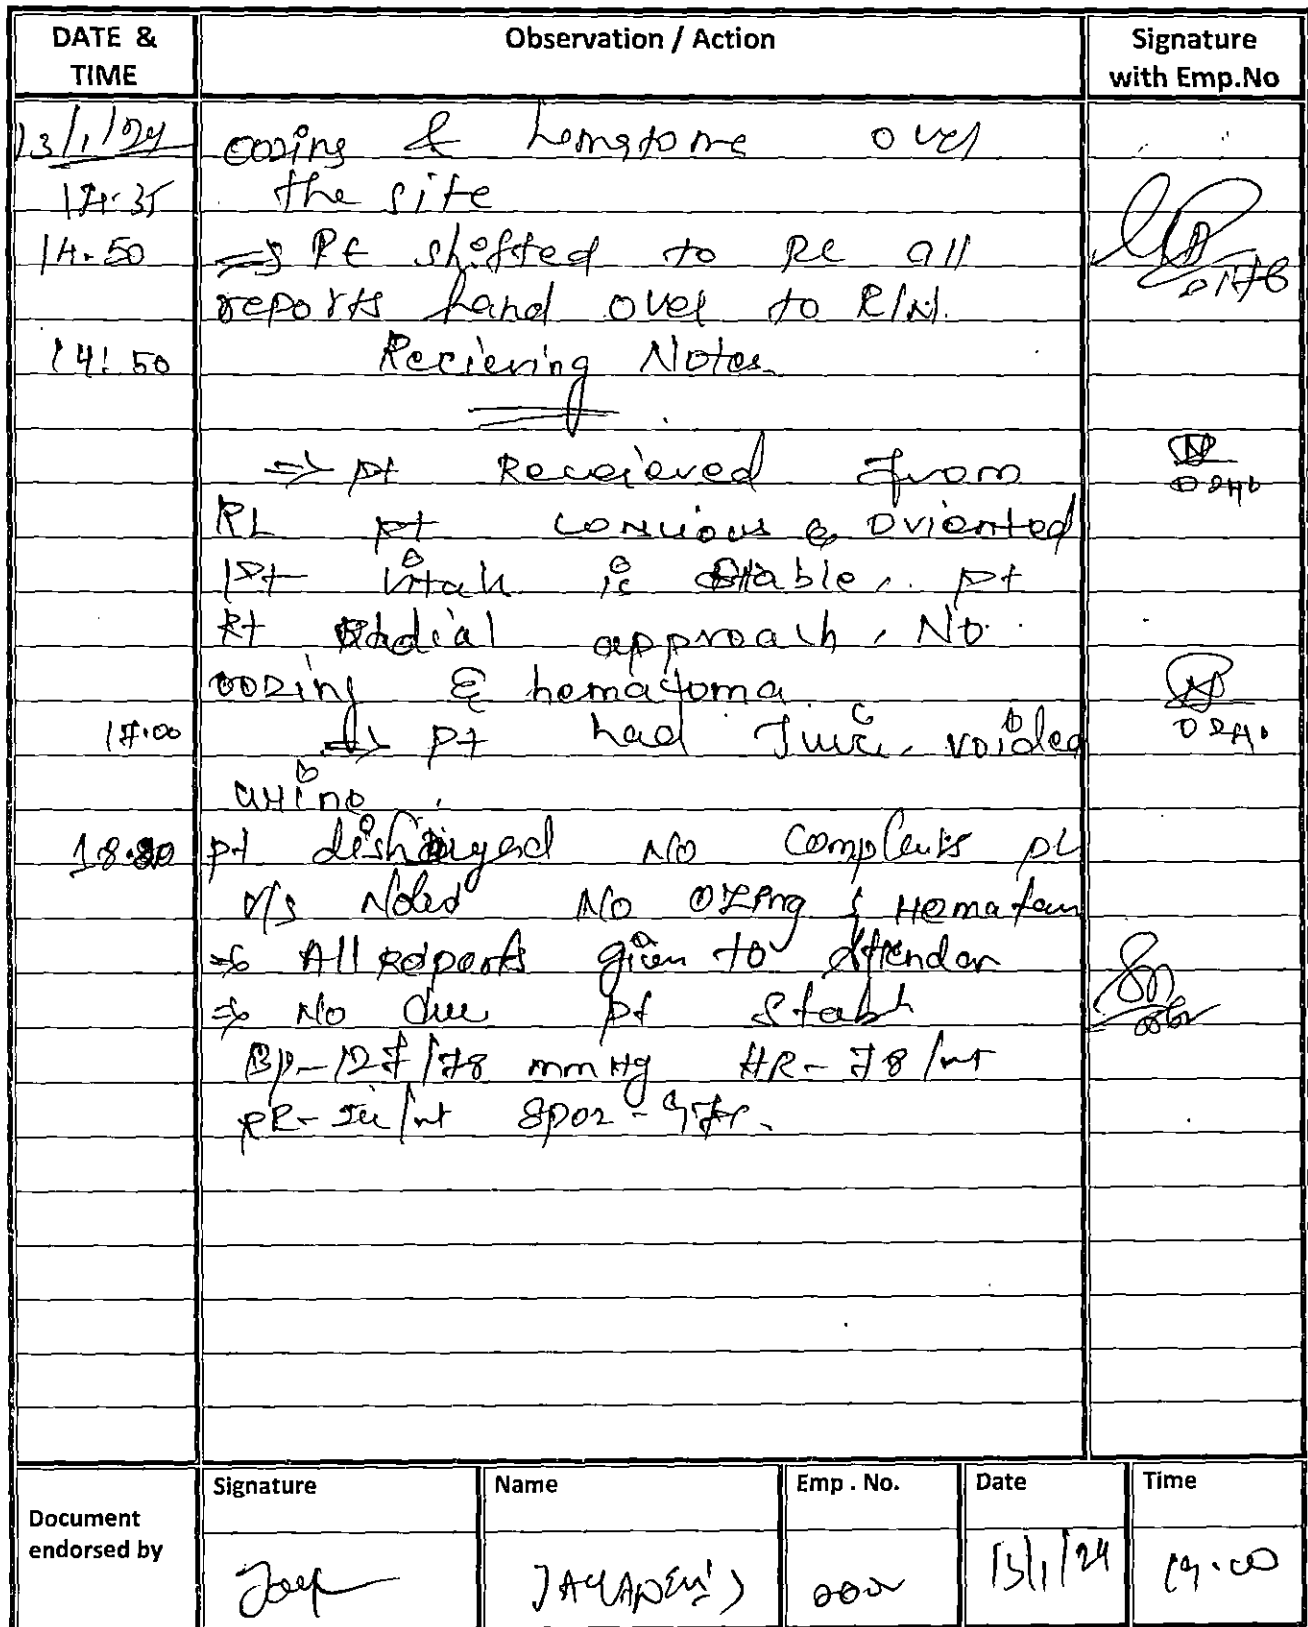 DATE & TIME Observation / Action Signature with Emp.No
13/1/24 oozing & hematoma over
14.35 the site
14.50 => Pt shifted to RL all
reports hand over to R/N.
14:50 Recieving Notes
=> pt Receieved from
RL pt consious & Oriented
pt vitals is stable, pt
Rt Radial approach, No
oozing & hematoma
17.00 => pt had Juice, voided
urine
18. pt discharged No Complents pt
v/s Noted No & Hematom
=> All Reports given to Attender
=> No due pt Stabl
BP-127/78 mmHg HR-78/mt
RR- /mt SPO2-97%.
Document endorsed by Signature Name Emp . No. Date Time
13/1/24 19.00